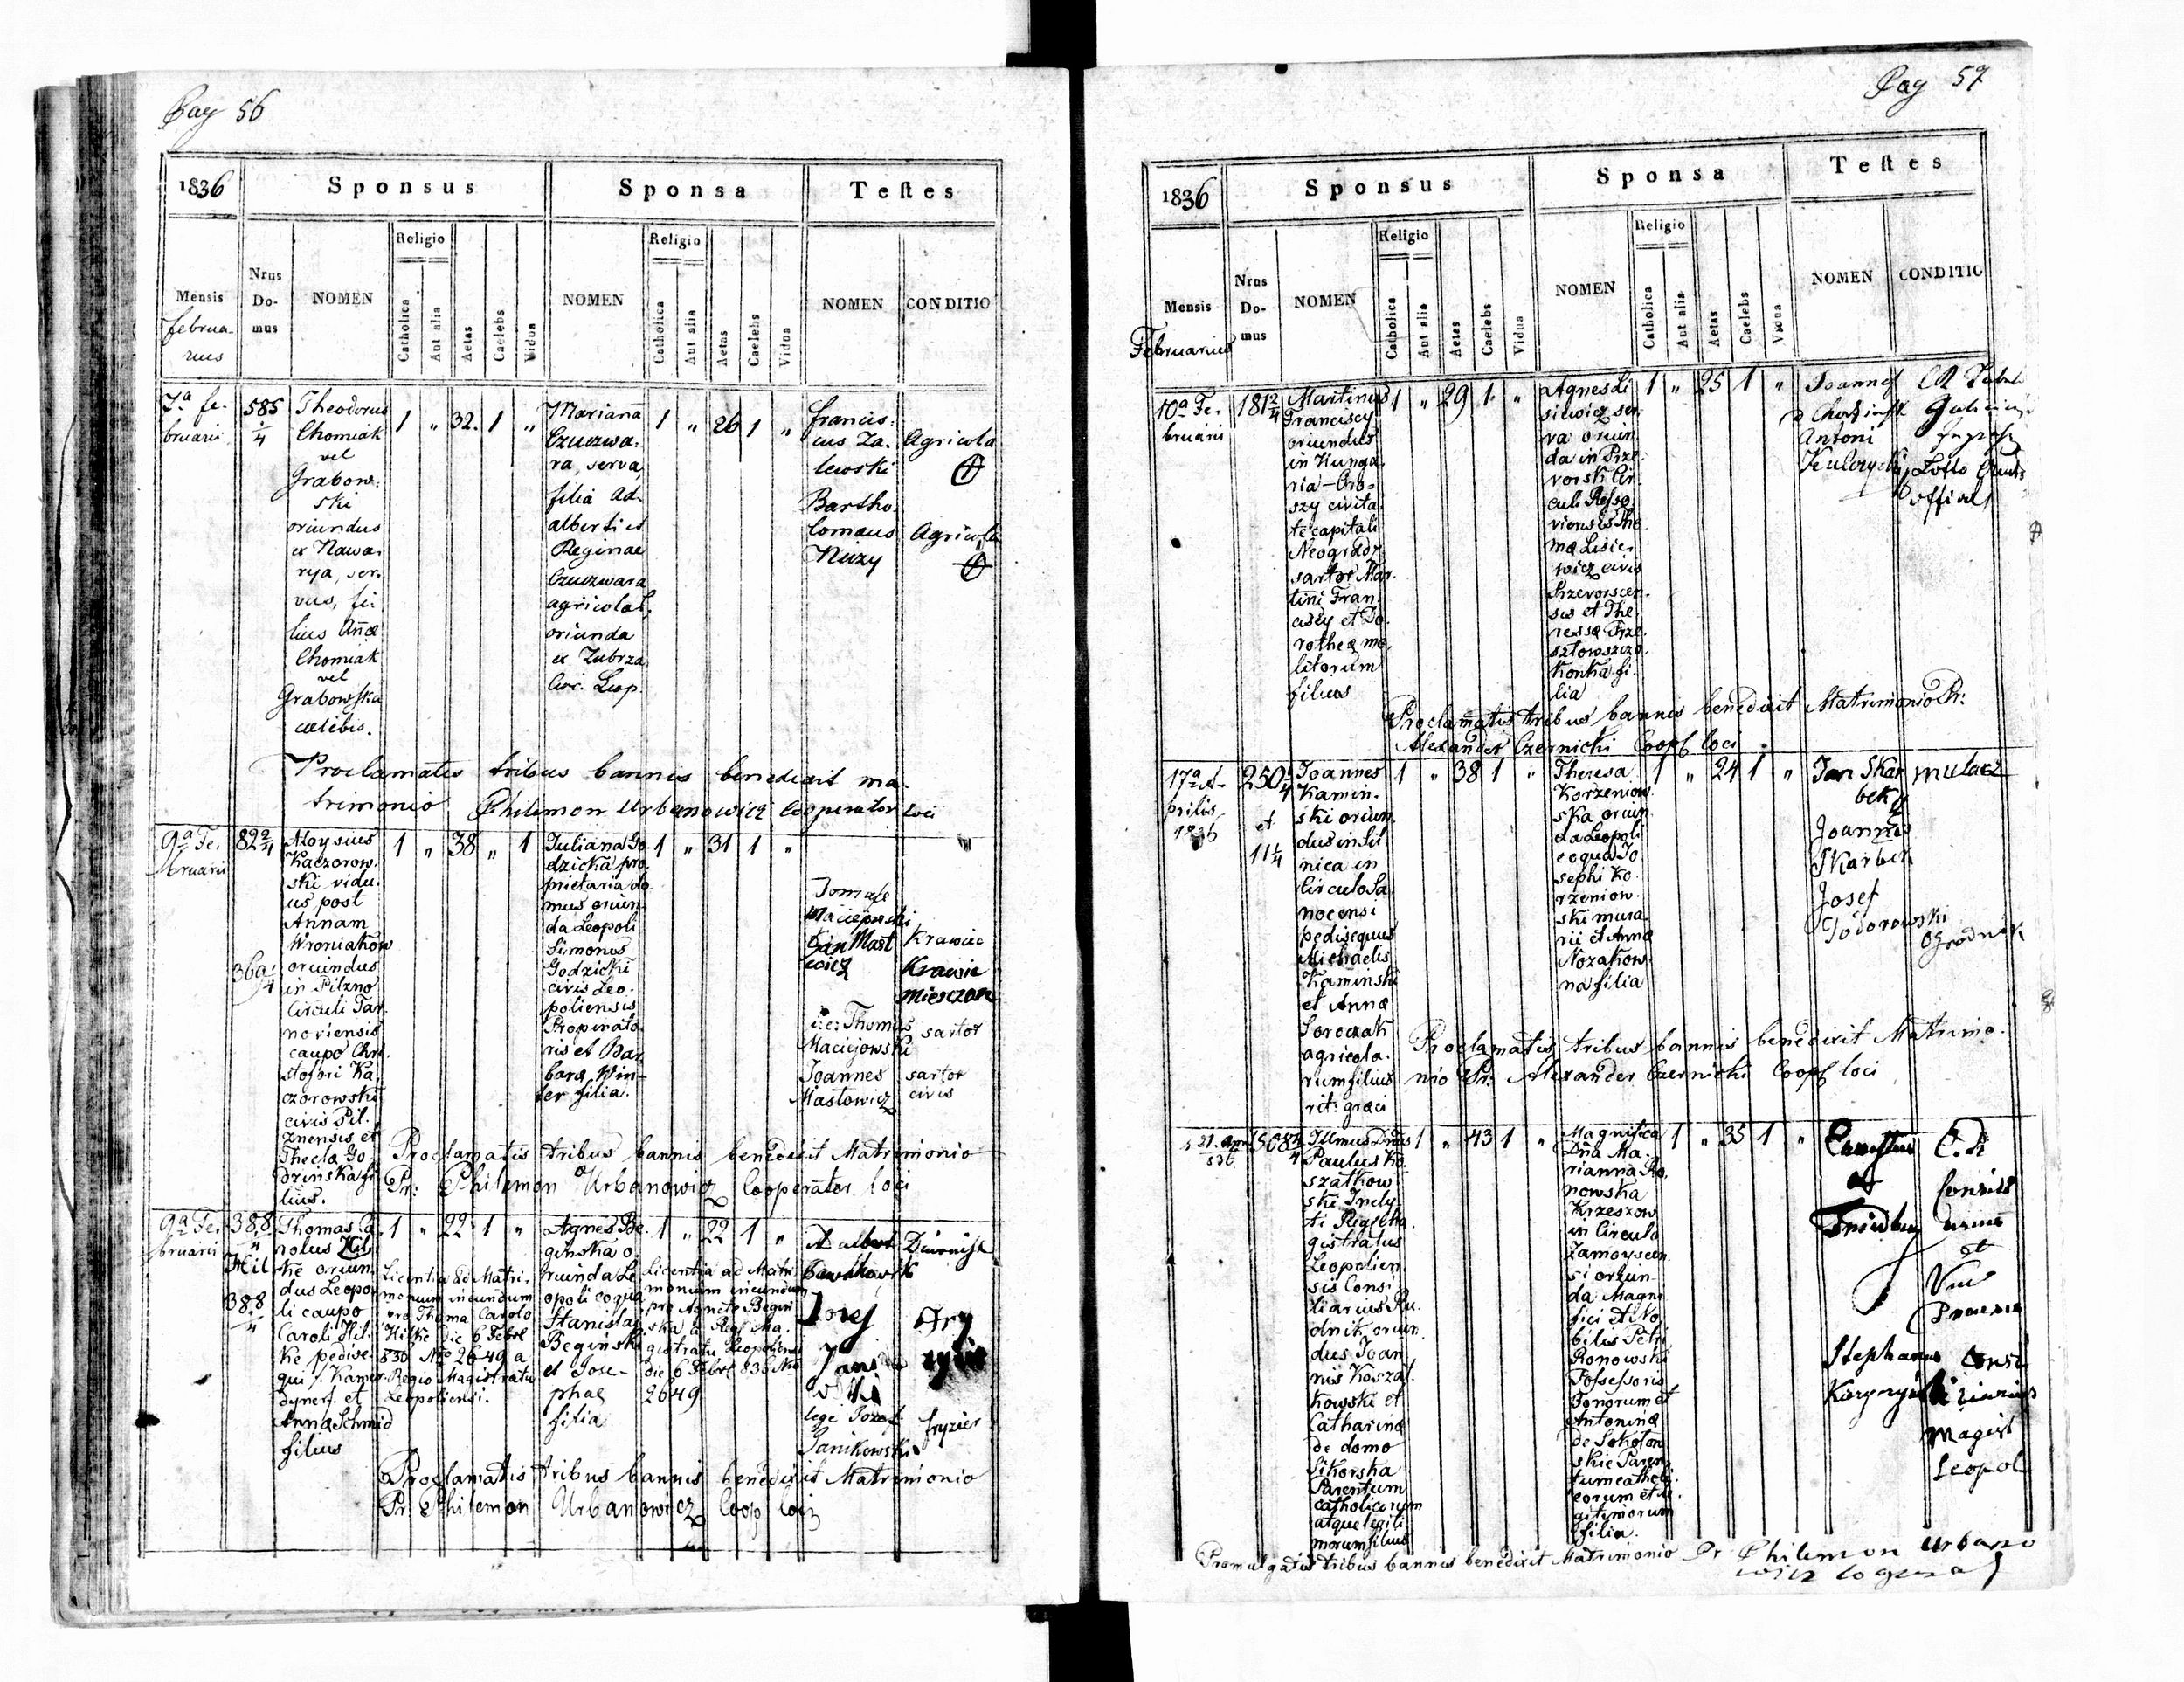 Pag 56
1836
Sponsus
Sponsa
Testes
Mensis
Februa-
rius
Nrus
Do-
mus
NOMEN
Religio
Catholica
Aut alia
Aetas
Caelebs
Vidua
NOMEN
Religio
Catholica
Aut alia
Aetas
Caelebs
Vidua
NOMEN
CONDITIO
7a fe-
bruarii
585
4
Theodorus
Chomiak
vel
Grabow-
ski
oriundus
ex Nawa-
rya, ser-
vus, fi-
lius Annae
Chomiak
vel
Grabowska
caelibis.
1 " 32. 1 "
Marianna
Czuczwa-
ra, serva,
filia Ad-
alberti et
Reginae
Czuczwara
agricolar.
oriunda
ex Zubrza
Circ. Leop.
1 " 26 1 "
Francis-
cus Za-
lewski
Agricola
Bartho-
lomaus
Agricola
Proclamatis tribus bannis benedixit ma-
trimonio Philemon Urbanowicz Cooperator loci
9a Fe-
bruarii
82 2/4
369 1/4
Aloysius
Kaczorow-
ski vidu-
us post
Annam
Wroniakow
oriundus
in Pilzno
Circuli Tar-
noviensis
caupo Chri-
stofori Ka-
czorowski
civis Pil-
znensis et
Theclae Go-
dzinska fi-
lius.
1 " 38 " 1
Juliana Go-
dzicka pro-
prietaria do-
mus oriun-
da Leopoli
Simonis
Godzicki
civis Leo-
poliensis
Propinato-
ris et Bar-
bara Win-
ter filia.
1 " 31 1 "
Tomasz
Maciejowski
Jan Mast
owicz
Krawiec
Krawiec
Miesczan
i.e: Thomas
Maciejowski
sartor
Joannes
Mastowicz
sartor
civis
Proclamatis tribus bannis benedixit Matrimonio
Pr: Philemon Urbanowicz Cooperator loci
9a Fe-
bruarii
388
4
388
4
Thomas Ca-
rolus Hil-
ke oriun-
dus Leopo-
li caupo
Caroli Hil-
ke pedise-
qui
et
Anna Schmid
filius
1 " 22 1 "
Licentia ad Matri-
monium ineundum
pro Thoma Carolo
Hilke die 6 Febr
836 Nro 2649 a
Regio Magistratu
Leopoliensi.
Agnes Be-
ginska o-
riunda Le-
opoli coqua
Stanislai
Beginski
et Jose-
phae
filia
1 " 22 1 "
Licentia ad Matri
monium ineundum
pro Agnete Begin
ska a Reg. Ma-
gistratu Leopoliensi
die 6 Febr 836 Nro
2649
Josef
lege Jozef
Janikowski
fryzier
Proclamatis tribus bannis benedixit Matrimonio
Pr: Philemon Urbanowicz Coop loci
Pag 57
1836
Sponsus
Sponsa
Testes
Mensis
Februarius
Nrus
Do-
mus
NOMEN
Religio
Catholica
Aut alia
Aetas
Caelebs
Vidua
NOMEN
Religio
Catholica
Aut alia
Aetas
Caelebs
Vidua
NOMEN
CONDITIO
10a Fe-
bruarii
181 2/4
Martinus
Franciscy
oriundus
in Hunga-
ria - Oro-
szy civita-
te capitali
Neogradz
sartor Mar-
tini Fran-
ciscy et Do-
rothea mo-
litorum
filius
1 " 29 1 "
Agnes Li
siewicz ser-
va oriun-
da in Prze-
vorsk Cir-
culi Resso-
viensis Tho-
ma Lisie-
wicz civis
Przevorscen-
sis et The-
ressa Prze-
sztowszczo-
konka fi-
lia
1 " 25 1 "
Joannes
Antoni
Kulczycki
Lotto
Proclamatis tribus bannis benedixit Matrimonio Pr:
Alexander Czernicki Coop loci
17a A-
prilis
1836
250 1/4
et
11 1/4
Joannes
Kamin-
ski oriun-
dus in Sil-
nica in
Circulo Sa-
nocensi
pedisequus
Michaelis
Kaminski
et Anna
Soroczak
agricola-
rum filius
rit: graeci
1 " 38 1 "
Theresa
Korzeniow-
ska oriun-
da Leopoli
coqua Jo-
sephi Ko-
rzeniow-
ski mura-
rii et Anna
Nozakow-
na filia
1 " 24 1 "
Jan Skar
bek
mularz
Joannes
Skarbek
Josef
Todorowski
ogrodnik
Proclamatis tribus bannis benedixit Matrimo-
nio Pr: Alexander Czernicki Coop loci
508
4
Illmus Dnus
Paulus Ko-
szatkow-
ski Incly-
ti Regii Ma-
gistratus
Leopolien-
sis Consi-
liarius Ru-
dnik oriun-
dus Joan-
nis Koszat-
kowski et
Catharina
de domo
Sikorska
Parentum
catholicorum
atque legiti-
morum filius
1 " 43 1 "
Magnifica
Dna Ma-
rianna Ro-
nowska
Krzeszow
in Circulo
Zamoyscen-
si oriun-
da Magni-
fici et No-
bilis Petri
Ronowski
Possessoris
Bonorum et
Antonina
de Sokołow-
skie Paren-
tum catholi-
corum et le-
gitimorum
filia.
1 " 35 1 "
et
Stephanus
Consi
liarius
Magist
Leopol
Promulgatis tribus bannis benedixit Matrimonio Pr Philemon Urbano
wicz